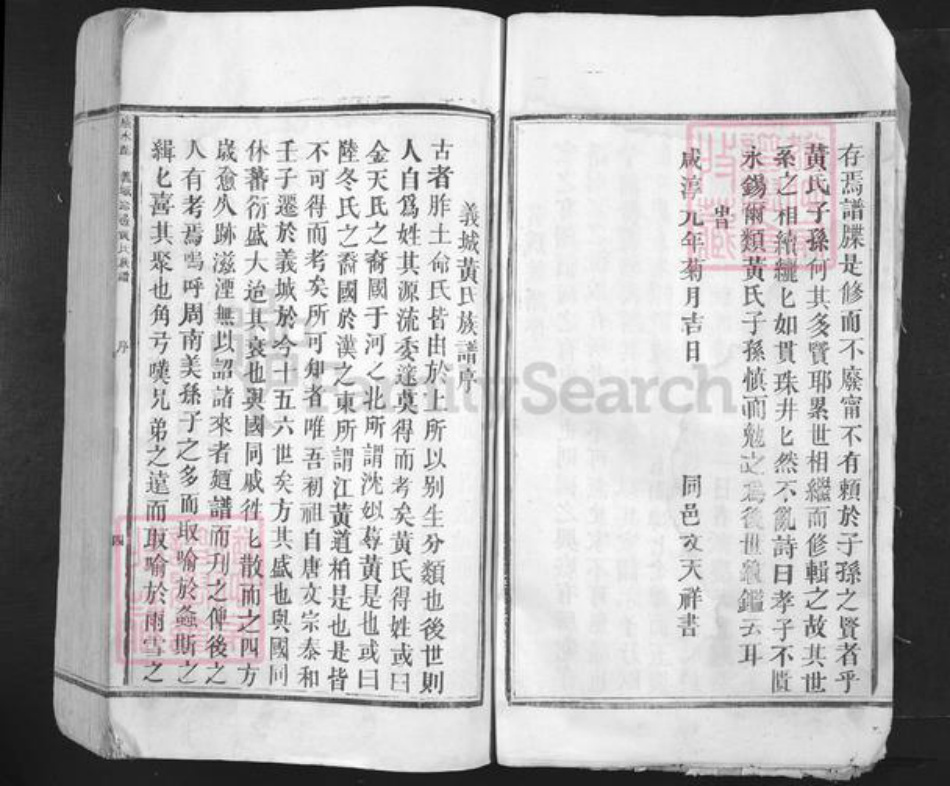 存焉譜牒是修而不廢甯不有賴於子孫之賢者乎
黃氏子孫何其多賢耶累世相繼而修輯之故其世
系之相續纚匕如貫珠井匕然不亂詩曰孝子不匱
永錫爾類黃氏子孫慎而勉之為後世鏡鑑云耳
旹
咸淳元年菊月吉日 同邑文天祥書
義城黃氏族譜序
古者胙土命氏皆由於上所以別生分類也後世則
人自爲姓其源流委達莫得而考矣黃氏得姓或曰
金天氏之裔國于河之北所謂沈姒蓐黃是也或曰
陸冬氏之裔國於漢之東所謂江黃道柏是也是皆
不可得而考矣所可知者唯吾初祖自唐文宗泰和
壬子遷於義城於今十五六世矣方其盛也與國同
休蕃衍盛大迨其衰也與國同戚徃匕散而之四方
歲愈久跡滋湮無以詔諸來者廼譜而刋之俾後之
人有考焉嗚呼周南美孫子之多而取喻於螽斯之
緝匕喜其聚也角弓嘆兄弟之遠而取喻於雨雪之
序
四
FamilySearch